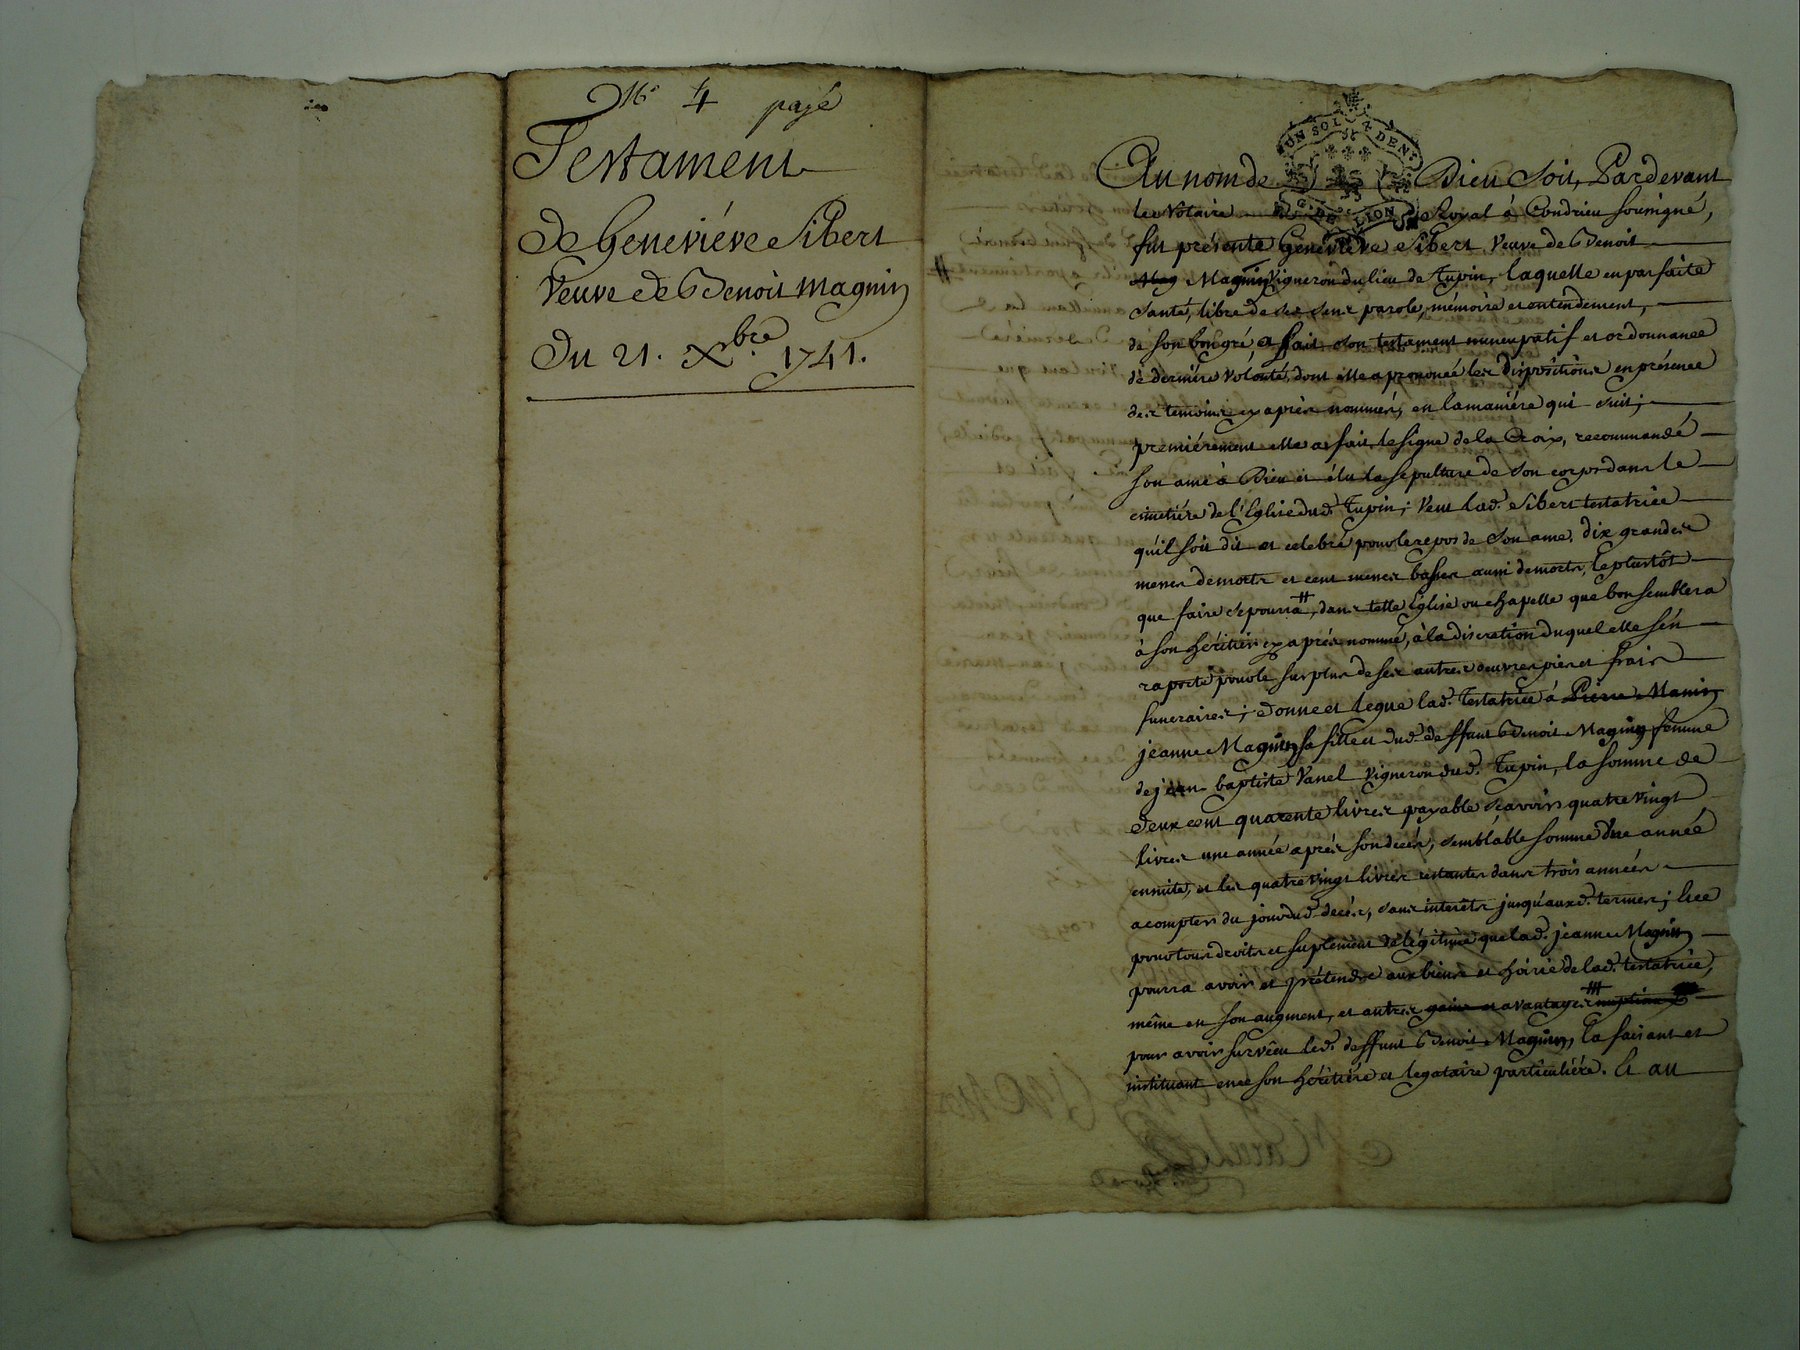 No 4 payé
Testament
de Geneviéve Sibert
Veuve de Benoit Magnin
Du 21. Xbre. 1741.
UN SOL 4 DENrs
G. DE LION
Au nom de Dieu Soit, Pardevant
le Notaire Royal à Condrieu soussigné,
fut présente Geneviéve Sibert Veuve de Benoit
Mag Magnin Vigneron du lieu de Tupin, laquelle en parfaite
santé, libre de ses sens parole, mémoire et entendement,
de son bon gré a fait son testament nuncupatif et ordonnance
de derniére Volonté, dont elle a prononcé les dispositions en présence
des temoins cy aprés nommés, en la maniére qui suit;
premiérement elle a fait le signe de la Croix, recommandé
son ame à Dieu et élu la sepulture de son corps dans le
cimetiére de l'Eglise dud. Tupin; Veut lad. Sibert testatrice
qu'il soit dit et celebré pour le repos de son ame, dix grandes
messes de morts et cent messes basses aussi de morts, le plustôt
que faire se pourra, dans telle Eglise ou chapelle que bon semblera
à son héritier cy aprés nommé, à la discretion duquel elle s'en
raporte pour le surplus de ses autres oeuvres pies et frais
funeraires; donne et legue lad. Testatrice à Pierre Manin
jeanne Magnin sa fille et dud. deffunt Benoit Magnin femme
de jean baptiste Vanel Vigneron dud. Tupin, la somme de
deux cent quarente livres payable scavoir quatre vingt
livres une année aprés son decés, semblable somme une année
ensuite, et les quatre vingt livres restantes dans trois années
a compter du jour dud. decés, sans interêts jusqu'auxd. termes; hce
pour tous droits et suplement de légitime que lad. jeanne Magnin
pourra avoir et prétendre aux biens et hoirie de lad. testatrice,
même en son augment, et autres gains et avantages nuptiaux
pour avoir survêcu led. deffunt Benoit Magnin, la faisant et
instituant en ce son héritiére et legataire particuliére. Et au